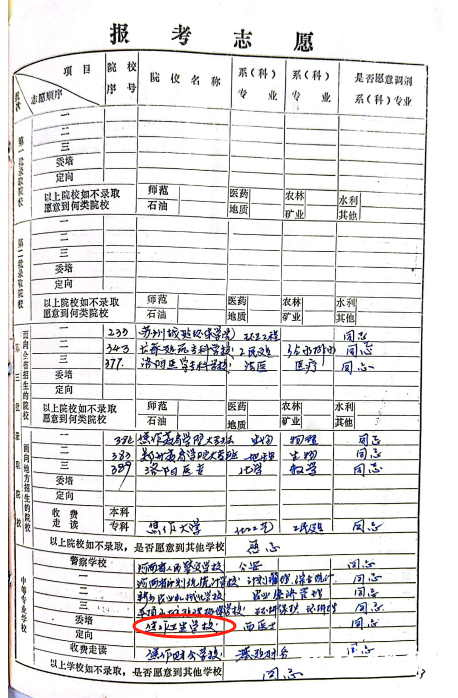 报考志愿
项目 院校序号 院校名称 系(科)专业 系(科)专业 是否愿意调剂系(科)专业
批次 志愿顺序
第一批录取院校
一
二
三
委培
定向
以上院校如不录取愿意到何类院校 师范 医药 农林 水利
石油 地质 矿业 其他
第二批录取院校
一
二
三
委培
定向
以上院校如不录取愿意到何类院校 师范 医药 农林 水利
石油 地质 矿业 其他
第三批录取院校
面向全省招生的院校
一 233 苏州城 环保学院
二 343 专科学校 给水排水 同志
三 377 洛阳医学专科学校 法医 医疗 同志
委培
定向
以上院校如不录取愿意到何类院校 师范 医药 农林 水利
石油 地质 矿业 其他
面向地方招生的院校
一 382 焦作教育学院大专班 生物 物理 同志
二 383 教育学院大专班 地理 生物 同志
三 389 洛阳医专 化学 数学 同志
委培
定向
收费走读 本科
专科 焦作大学 同志
以上院校如不录取,是否愿意到其他学校 愿志
中等专业学校
警察学校 河南省人民警察学校 公安 同志
一 河南省计划统计学校 计划管理 同志
二 新乡农业机械化学校 农业经济管理 同志
三 环境保护 同志
委培 焦作卫生学校 西医士 同志
定向
收费走读 焦作财会学校 同志
以上学校如不录取,是否愿意到其他学校 同志
13